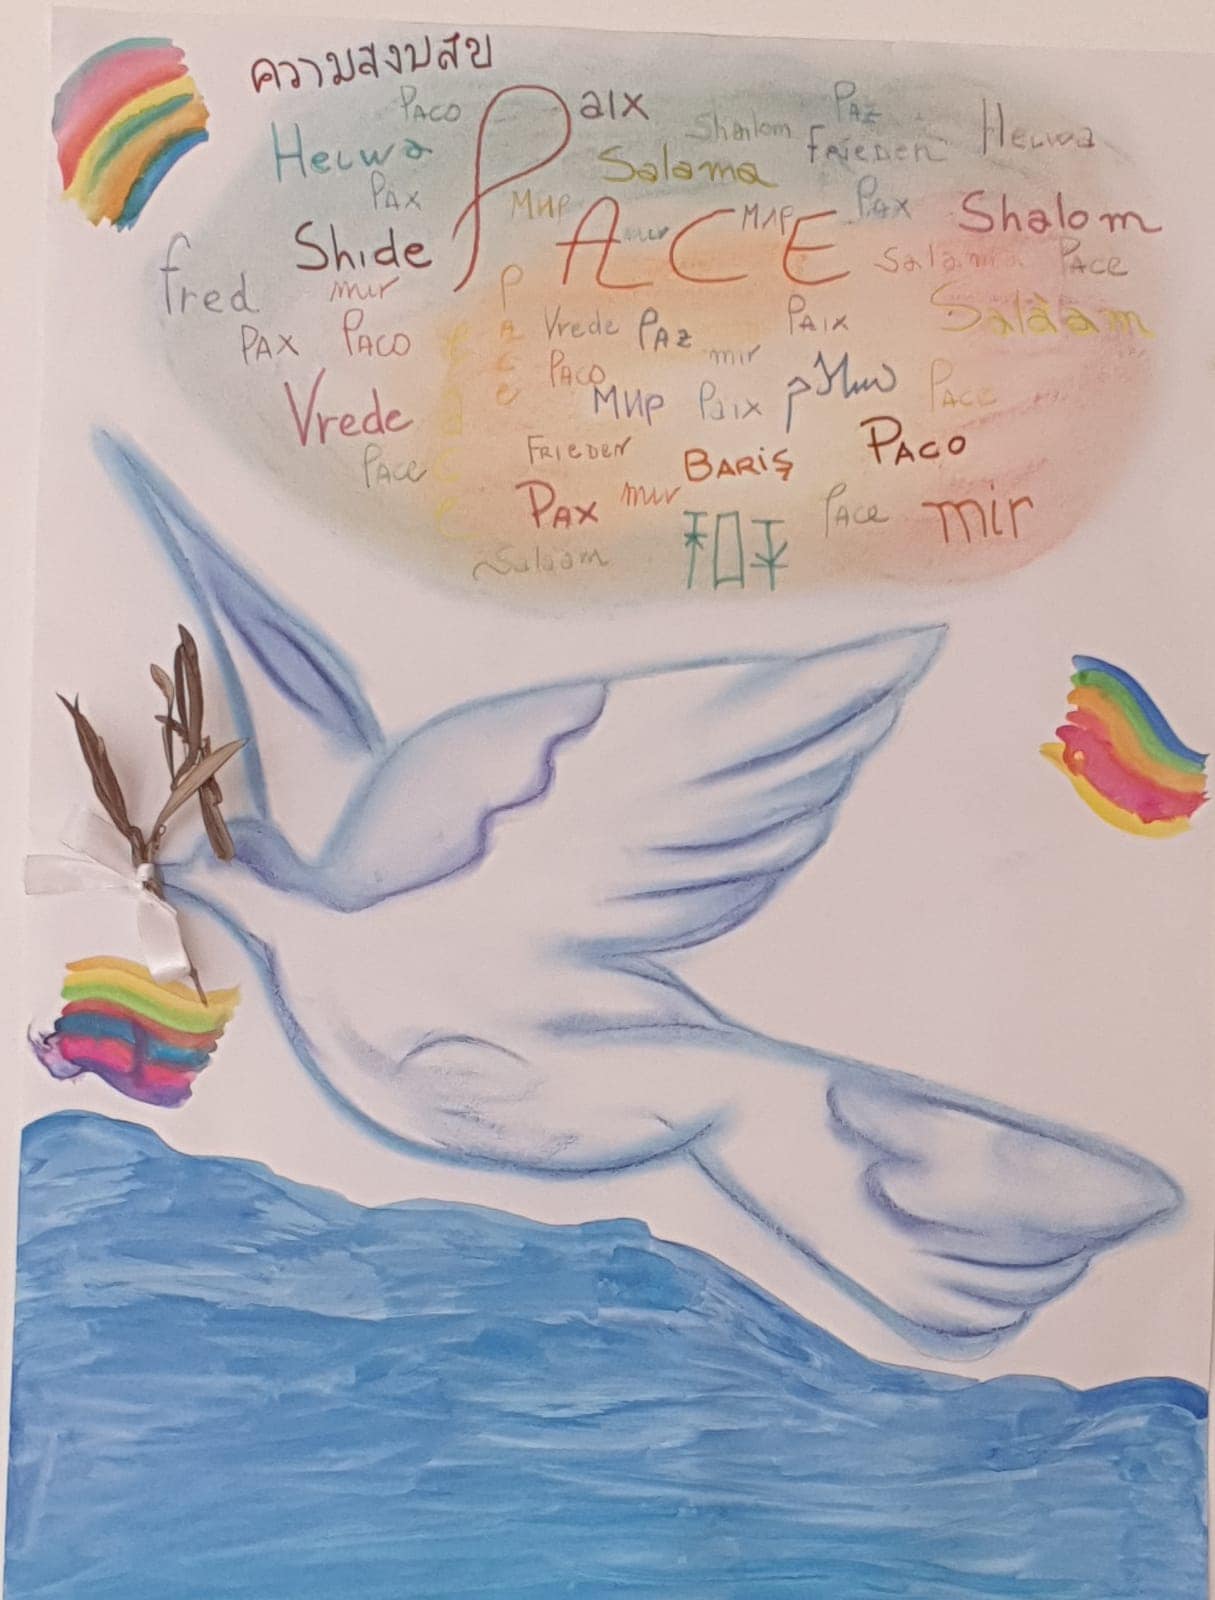 ความสงบสุข
PACO Paix Paz
Helwa Shalom Frieden Helwa
Salama
Pax Мир Мир Pax Shalom
PACE
Shide mir Salama Pace
fred mir Pace
Vrede Paz Paix Salàam
PAX PACO mir
Paco
Vrede Мир Paix Pace
Pace Frieden BARIŞ PACO
Pace
Pax mir Pace mir
Salaam 和平